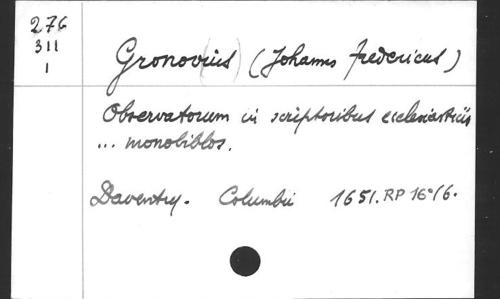 276
311
1
Gronovius (Johannes fredericus)
Observatorum in scriptoribus ecclesiasticis
... monobiblos.
Daventry. Columbii 1651. RP 16º/6.